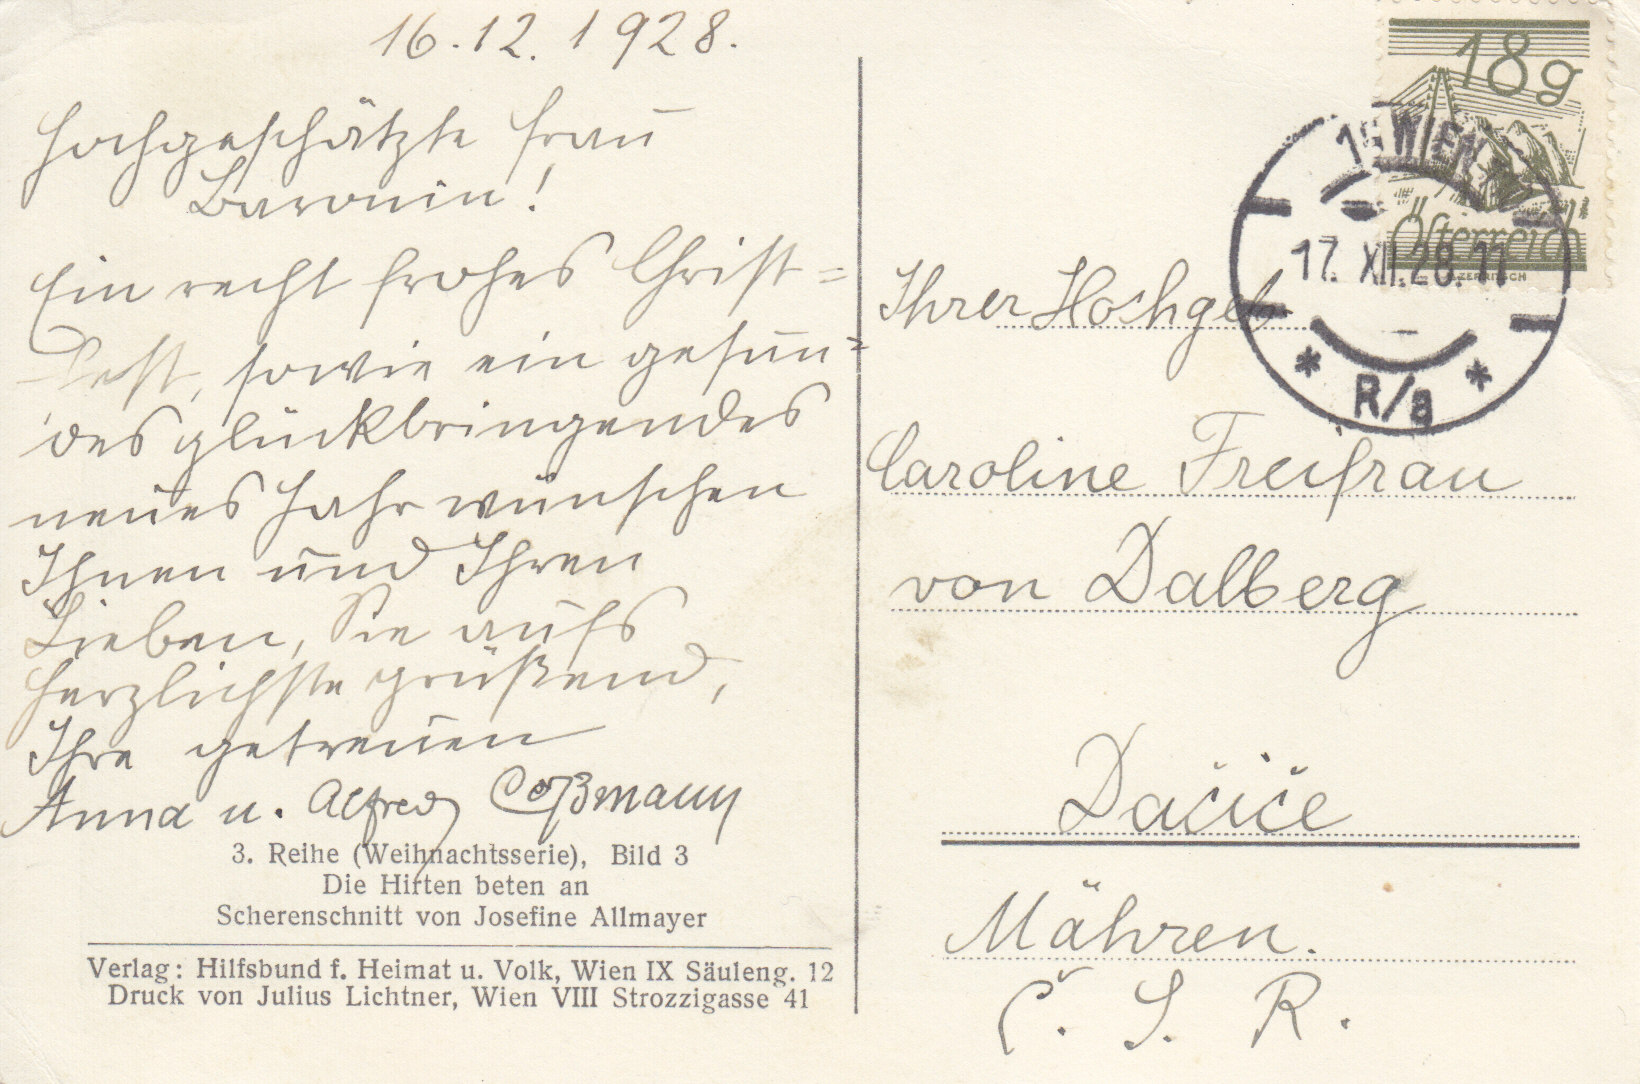 16.12.1928.
Hochgeschätzte Frau
Baronin!
Ein recht frohes Christ=
fest, sowie ein gesun=
des glückbringendes
neues Jahr wünschen
Ihnen und Ihren
Lieben, Sie aufs
herzlichste grüßend,
Ihre getreuen
Anna u. Alfred Coßmann
3. Reihe (Weihnachtsserie), Bild 3
Die Hirten beten an
Scherenschnitt von Josefine Allmayer
Verlag: Hilfsbund f. Heimat u. Volk, Wien IX Säuleng. 12
Druck von Julius Lichtner, Wien VIII Strozzigasse 41
18g
Österreich
WIEN
17. XII. 28. 11
* R/a *
Ihrer Hochgeb
Caroline Freifrau
von Dalberg
Dačiče
Mähren.
Č. S. R.